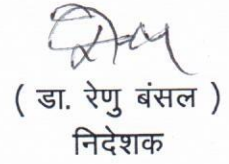 ( डा. रेणु बंसल )
निदेशक